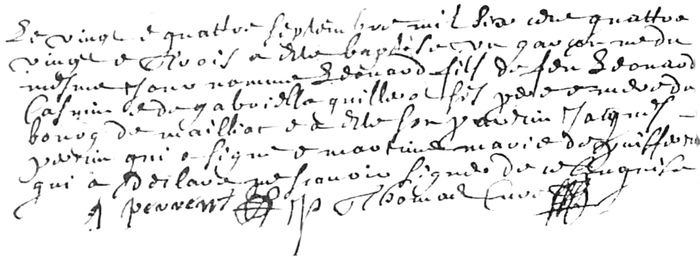 Le vingt e quattre septembre mil six cens quattre
vingt e trois a este baptise un garçon ne du
mesme jour nomme Leonard fils de feu Leonard
e de gabriella ses pere e mere du
bourg de mailliac e a este son parrin Jacques
perrin qui a signe e marrine marie
qui a declare ne scavoir signer de ce enquise
J perrin Thomas Curé